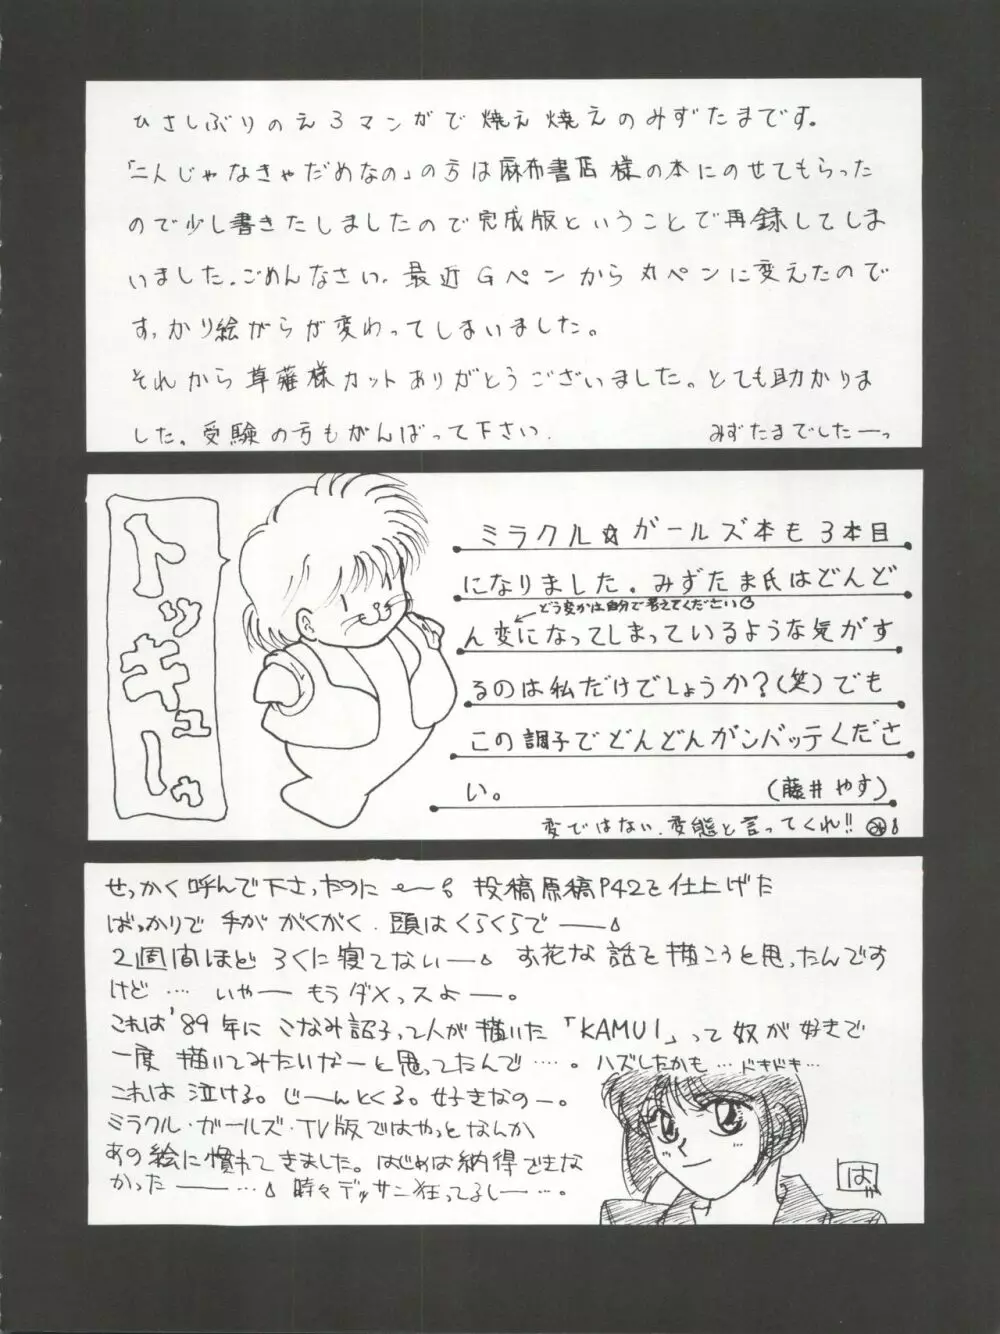 ひさしぶりのえろマンガで燃え燃えのみずたまです。
「二人じゃなきゃだめなの」の方は麻布書店様の本にのせてもらった
ので少し書きたしましたので完成版ということで再録してしま
いました。ごめんなさい。最近Gペンから丸ペンに変えたので
すっかり絵がらが変わってしまいました。
それから草薙様カットありがとうございました。とても助かりま
した。受験の方もがんばって下さい。
みずたまでしたーっ
トッキューゥ
ミラクル☆ガールズ本も3本目
になりました。みずたま氏はどんど
どう変かは自分で考えてください
ん変になってしまっているような気がす
るのは私だけでしょうか?(笑)でも
この調子でどんどんガンバッテくださ
い。
(藤井やす)
変ではない、変態と言ってくれ!!
せっかく呼んで下さったのに 投稿原稿P42を仕上げた
ばっかりで 手が がくがく 頭はくらくらで――
2週間ほど ろくに寝てない― お花な 話を 描こうと思ったんです
けど … いやー もうダメっスよー。
これは'89年に こなみ詔子って人が描いた「KAMUI」って奴が好きで
一度 描いてみたいなーと思ってたんで…。ハズしたかも … ドキドキ…
これは 泣ける。じーんとくる。好きなのー。
ミラクル・ガールズ・TV版ではやっとなんか
あの絵に慣れてきました。はじめは納得できな
かった――… 時々デッサン狂ってるしー…。
ば